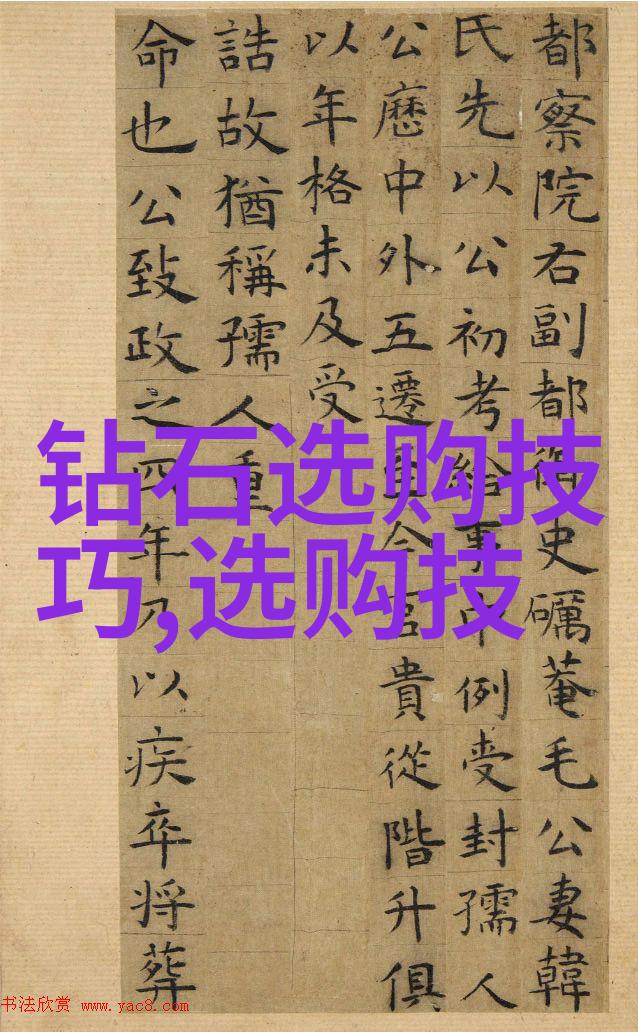 都察院右副都御史礪菴毛公妻韓
氏先以公初考給事中例受封孺人
公歷中外五遷至今官貴從階升俱
以年格未及受
誥故猶稱孺人重
命也公致政之四年乃以疾卒将葬
钻石选购技
巧,选购技
书法欣赏 www.yac8.com